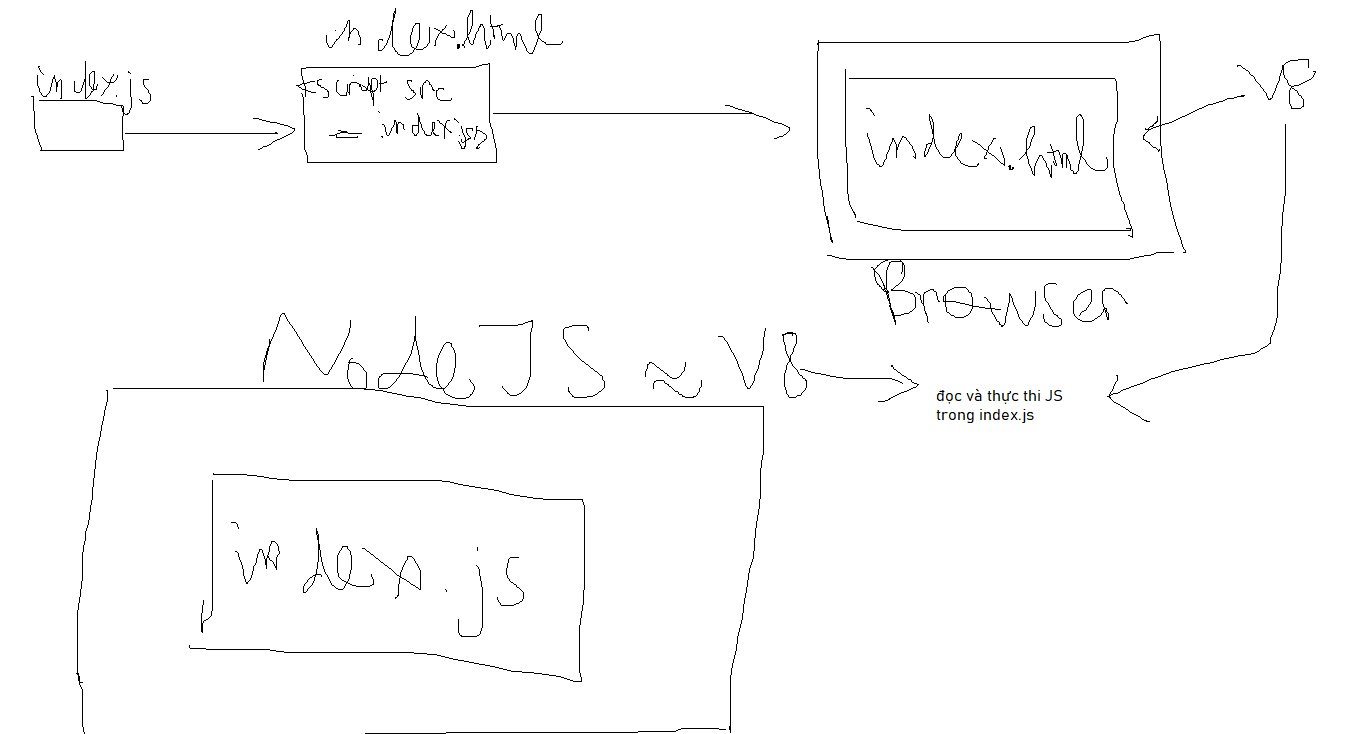 index.html
index.js
<script src
= index.js>
index.html
V8
Browser
NodeJS ≈ V8
đọc và thực thi JS
trong index.js
index.js